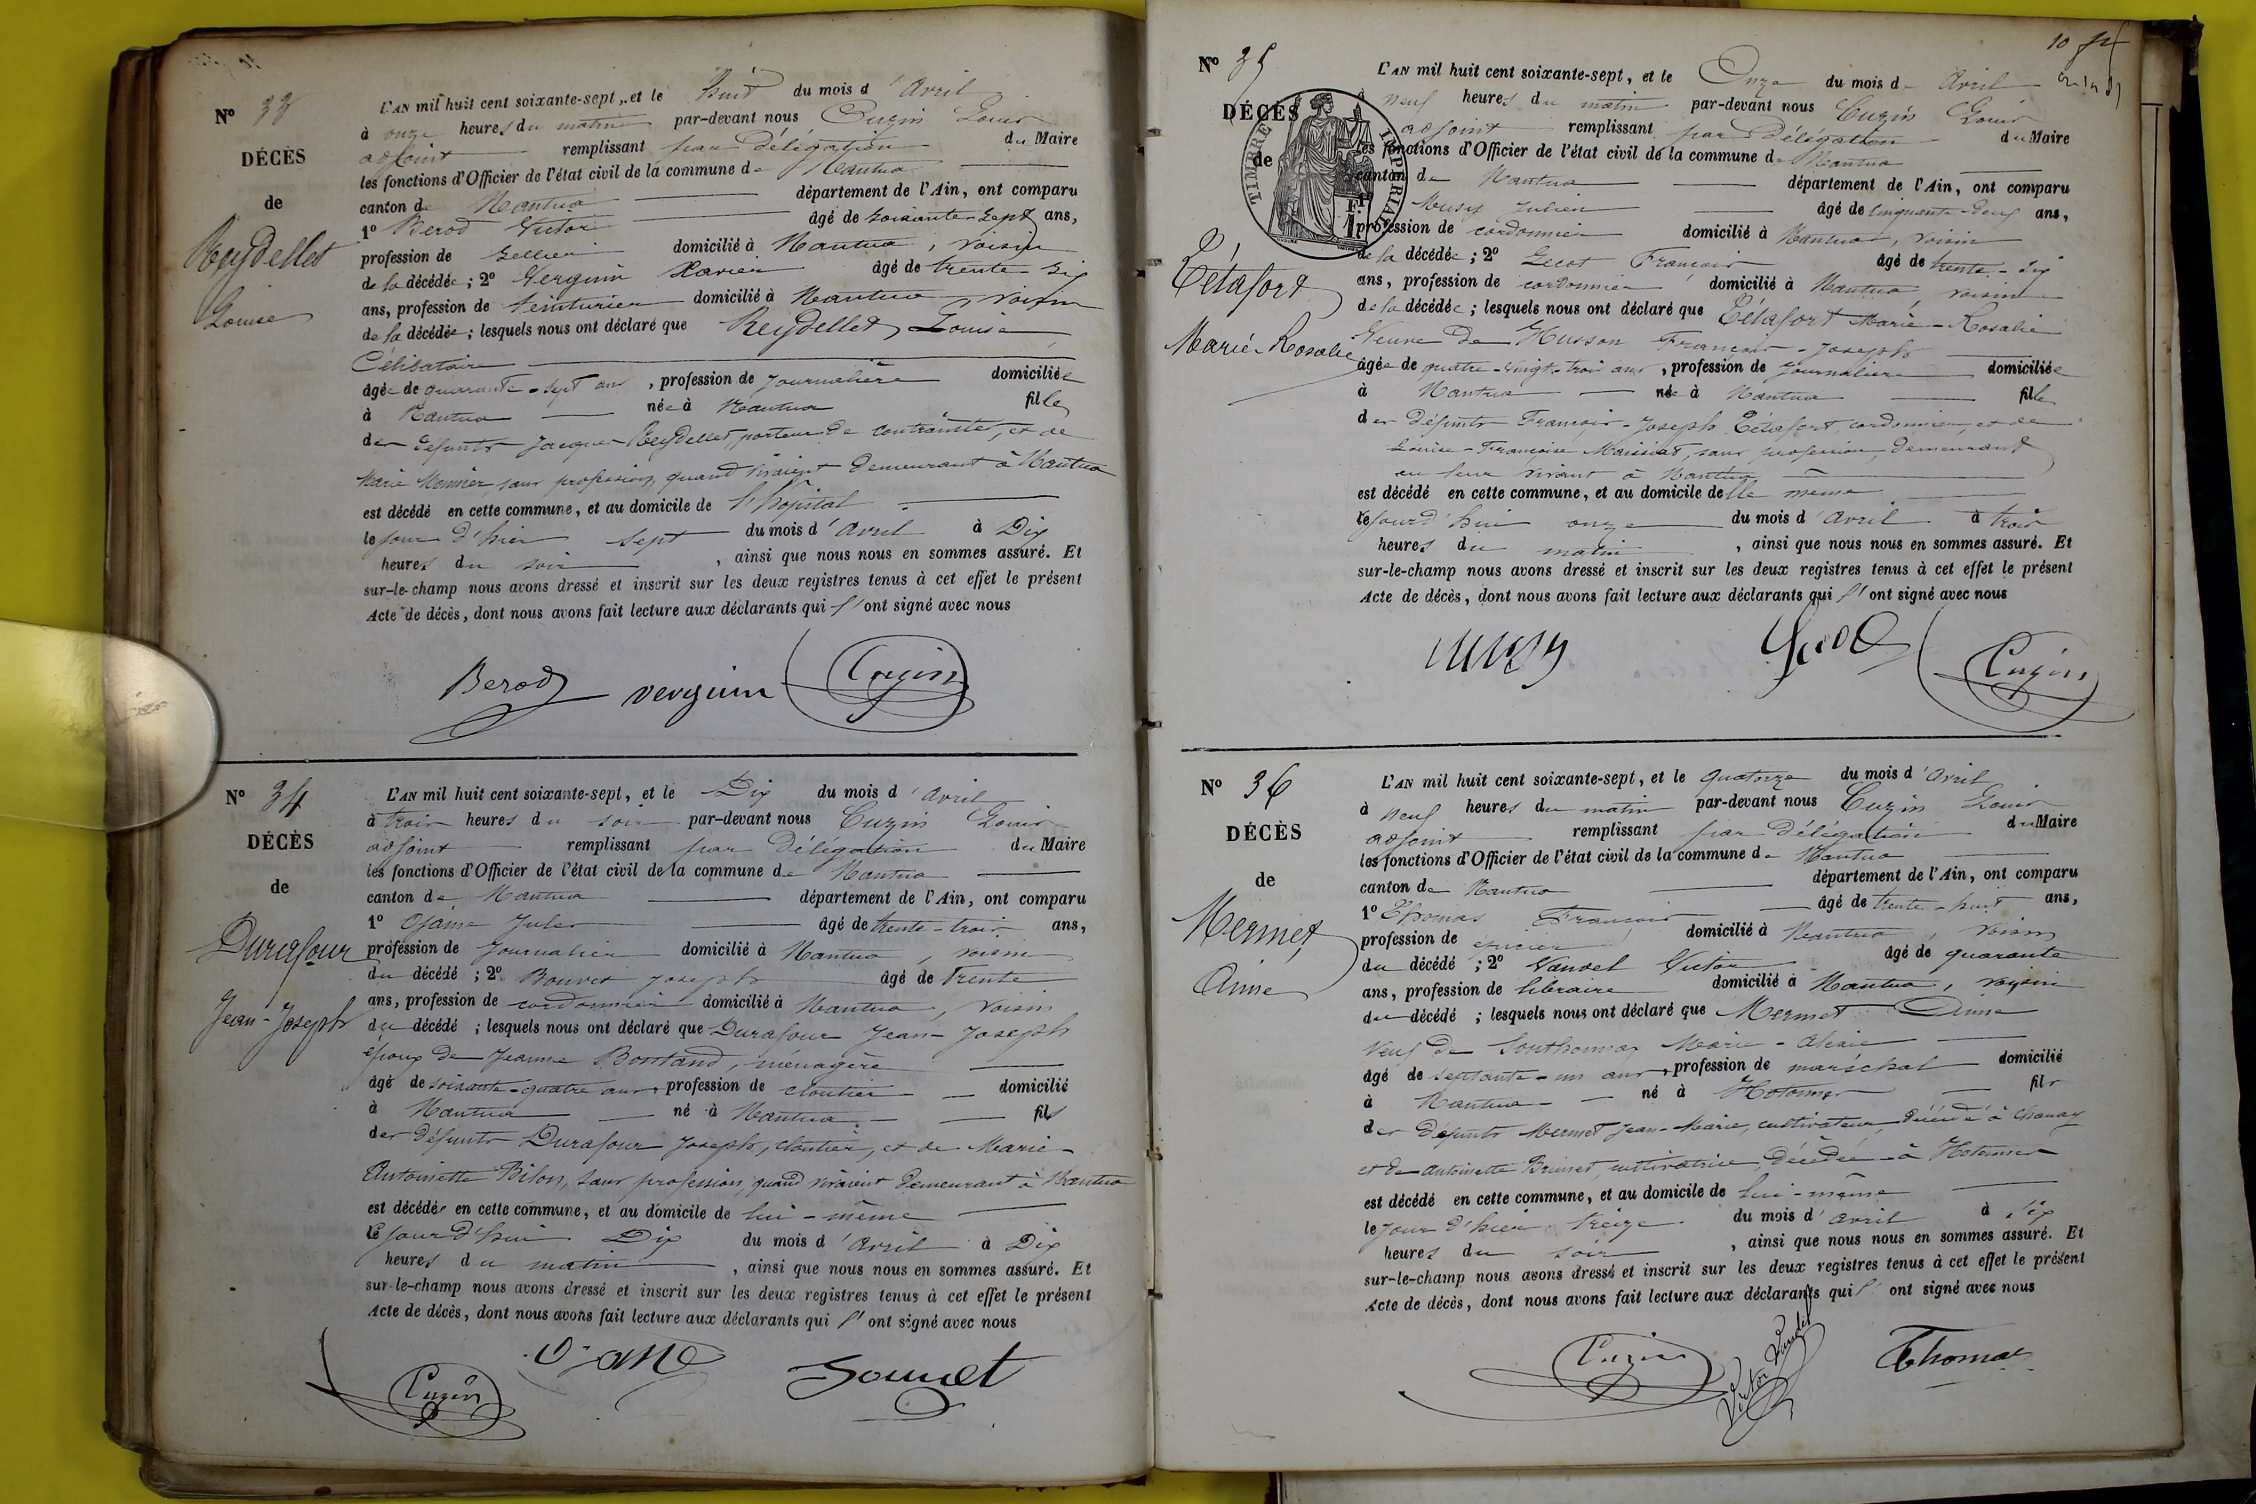 N° 33
DÉCÈS
de
Reydellet
Louise
L'AN mil huit cent soixante-sept, et le huit du mois d'Avril
à onze heures du matin par-devant nous Cuzin Louis
adjoint remplissant par Délégation du Maire
les fonctions d'Officier de l'état civil de la commune de Nantua
canton de Nantua département de l'Ain, ont comparu
1° Berod Victor âgé de soixante-sept ans,
profession de Sellier domicilié à Nantua, voisin
de la décédée; 2° Verguin Xavier âgé de trente-six
ans, profession de teinturier domicilié à Nantua, voisin
de la décédée; lesquels nous ont déclaré que Reydellet Louise
Célibataire
âgée de quarante-sept ans, profession de journalière domiciliée
à Nantua née à Nantua fille
des défunts Jacques Reydellet, porteur de contrainte, et de
Marie Monnier, sans profession, quand vivaient demeurant à Nantua
est décédé en cette commune, et au domicile de l'hôpital
le jour d'hier sept du mois d'Avril à Dix
heures du soir, ainsi que nous nous en sommes assuré. Et
sur-le-champ nous avons dressé et inscrit sur les deux registres tenus à cet effet le présent
Acte de décès, dont nous avons fait lecture aux déclarants qui l'ont signé avec nous
Berod verguin Cuzin
N° 34
DÉCÈS
de
Durafour
Jean-Joseph
L'AN mil huit cent soixante-sept, et le Dix du mois d'Avril
à trois heures du soir par-devant nous Cuzin Louis
adjoint remplissant par Délégation du Maire
les fonctions d'Officier de l'état civil de la commune de Nantua
canton de Nantua département de l'Ain, ont comparu
1° Ojame Jules âgé de trente-trois ans,
profession de Journalier domicilié à Nantua, voisin
du décédé; 2° Bouvet Joseph âgé de Trente
ans, profession de cordonnier domicilié à Nantua, voisin
du décédé; lesquels nous ont déclaré que Durafour Jean-Joseph
époux de Jeanne Bonnand, ménagère
âgé de soixante-quatre ans, profession de cloutier domicilié
à Nantua né à Nantua fils
des défunts Durafour Joseph, cloutier, et de Marie-
Antoinette Bilon, sans profession, quand vivaient demeurant à Nantua
est décédé en cette commune, et au domicile de lui-même
le jour d'hui Dix du mois d'Avril à Dix
heures du matin, ainsi que nous nous en sommes assuré. Et
sur-le-champ nous avons dressé et inscrit sur les deux registres tenus à cet effet le présent
Acte de décès, dont nous avons fait lecture aux déclarants qui l'ont signé avec nous
Cuzin Ojame Bouvet
10
N° 35
DÉCÈS
de
TIMBRE IMPÉRIAL
1 F
Tétafort
Marie-Rosalie
L'AN mil huit cent soixante-sept, et le Onze du mois d'Avril
à neuf heures du matin par-devant nous Cuzin Louis
adjoint remplissant par Délégation du Maire
les fonctions d'Officier de l'état civil de la commune de Nantua
canton de Nantua département de l'Ain, ont comparu
1° Musy Julien âgé de cinquante-deux ans,
profession de cordonnier domicilié à Nantua, voisin
de la décédée; 2° Gecot François âgé de trente-six
ans, profession de cordonnier domicilié à Nantua, voisin
de la décédée; lesquels nous ont déclaré que Tétafort Marie-Rosalie
Veuve de Husson François-Joseph
âgée de quatre-vingt-trois ans, profession de Journalière domiciliée
à Nantua née à Nantua fille
des défunts François-Joseph Tétafort, cordonnier, et de
Louise-Françoise Maissiat, sans profession, demeurant
en leur vivant à Nantua
est décédé en cette commune, et au domicile de elle même
le jour d'hui onze du mois d'Avril à trois
heures du matin, ainsi que nous nous en sommes assuré. Et
sur-le-champ nous avons dressé et inscrit sur les deux registres tenus à cet effet le présent
Acte de décès, dont nous avons fait lecture aux déclarants qui l'ont signé avec nous
Musy Cuzin
N° 36
DÉCÈS
de
Mermet
Aimé
L'AN mil huit cent soixante-sept, et le quatorze du mois d'Avril
à neuf heures du matin par-devant nous Cuzin Louis
adjoint remplissant par Délégation du Maire
les fonctions d'Officier de l'état civil de la commune de Nantua
canton de Nantua département de l'Ain, ont comparu
1° Thomas François âgé de trente-huit ans,
profession de épicier domicilié à Nantua, voisin
du décédé; 2° Vandel Victor âgé de quarante
ans, profession de libraire domicilié à Nantua, voisin
du décédé; lesquels nous ont déclaré que Mermet Aimé
Veuf de Southonnax Marie-
âgé de septante-un ans, profession de maréchal domicilié
à Nantua né à Hotonnes fils
des défunts Mermet Jean-Marie, cultivateur, décédé à Chanay
et de Antoinette Brunet, cultivatrice, décédée à Hotonnes
est décédé en cette commune, et au domicile de lui-même
le jour d'hier treize du mois d'avril à six
heures du soir, ainsi que nous nous en sommes assuré. Et
sur-le-champ nous avons dressé et inscrit sur les deux registres tenus à cet effet le présent
Acte de décès, dont nous avons fait lecture aux déclarants qui l'ont signé avec nous
Cuzin Victor Vandel Thomas